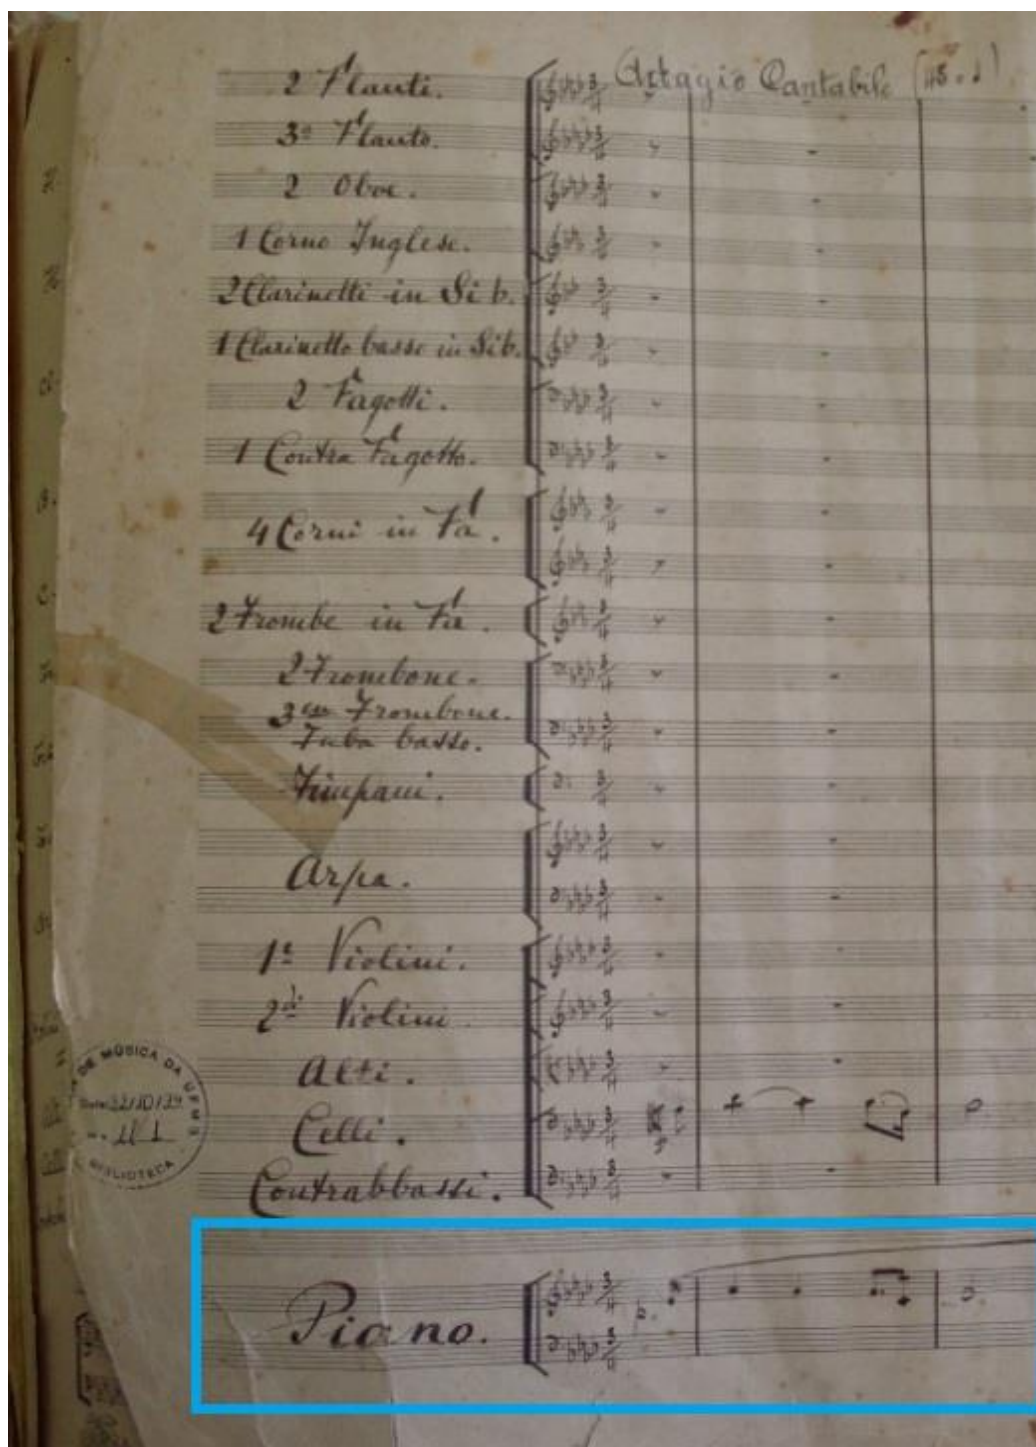 Adagio Cantabile (48 = ♩)
2 Flauti.
3º Flauto.
2 Oboe.
1 Corno Inglese.
2 Clarinetti in Si b.
1 Clarinetto basso in Sib.
2 Fagotti.
1 Contra Fagotto.
4 Corni in Fa.
2 Trombe in Fa.
2 Trombone.
Trombone.
Tuba basso.
Timpani.
Arpa.
Violini.
Violini
Alti.
Celli.
Contrabbassi.
DE MÚSICA DA
BIBLIOTECA
Piano.